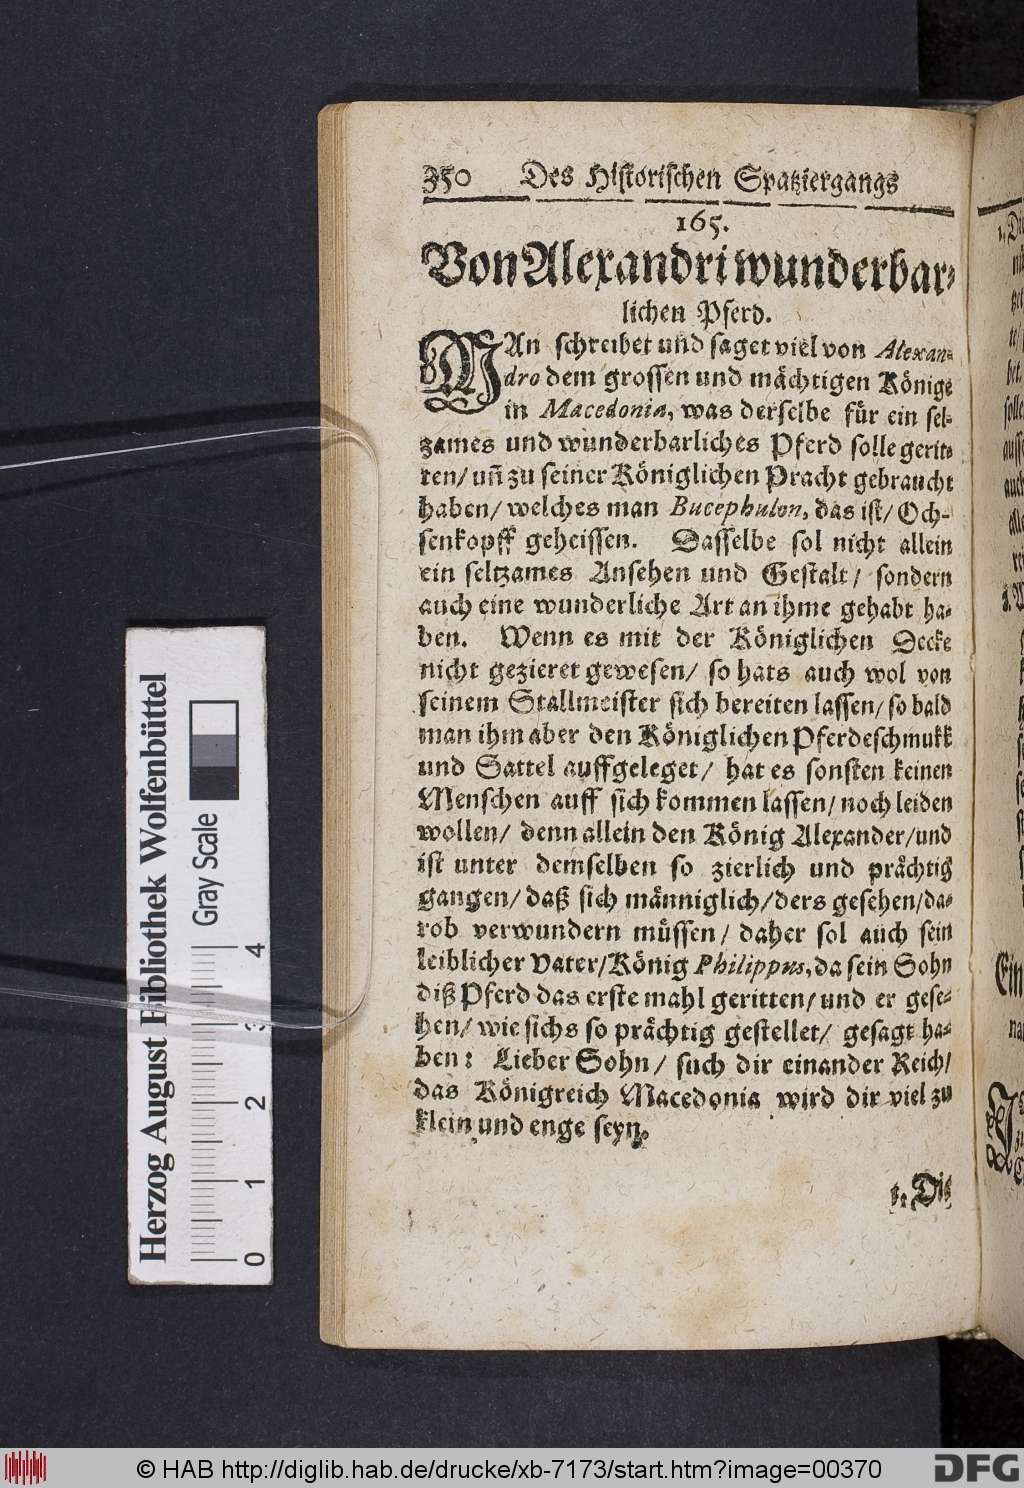 350 Des Historischen Spatziergangs
165.
Von Alexandri wunderbar-
lichen Pferd.
MAn schreibet und saget viel von Alexan-
dro dem grossen und mächtigen Könige
in Macedonia, was derselbe für ein sel-
zames und wunderbarliches Pferd solle gerit-
ten/ uñ zu seiner Königlichen Pracht gebraucht
haben/ welches man Bucephulon, das ist/ Och-
senkopff geheissen. Dasselbe sol nicht allein
ein seltzames Ansehen und Gestalt/ sondern
auch eine wunderliche Art an ihme gehabt ha-
ben. Wenn es mit der Königlichen Decke
nicht gezieret gewesen/ so hats auch wol von
seinem Stallmeister sich bereiten lassen/ so bald
man ihm aber den Königlichen Pferdeschmukk
und Sattel auffgeleget/ hat es sonsten keinen
Menschen auff sich kommen lassen/ noch leiden
wollen/ denn allein den König Alexander/ und
ist unter demselben so zierlich und prächtig
gangen/ daß sich männiglich/ ders gesehen/ da-
rob verwundern müssen/ daher sol auch sein
leiblicher Vater/ König Philippus, da sein Sohn
diß Pferd das erste mahl geritten/ und er gese-
hen/ wie sichs so prächtig gestellet/ gesagt ha-
ben: Lieber Sohn/ such dir einander Reich/
das Königreich Macedonia wird dir viel zu
klein und enge seyn.
Herzog August Bibliothek Wolfenbüttel
Gray Scale
0 1 2 3 4
© HAB http://diglib.hab.de/drucke/xb-7173/start.htm?image=00370
DFG